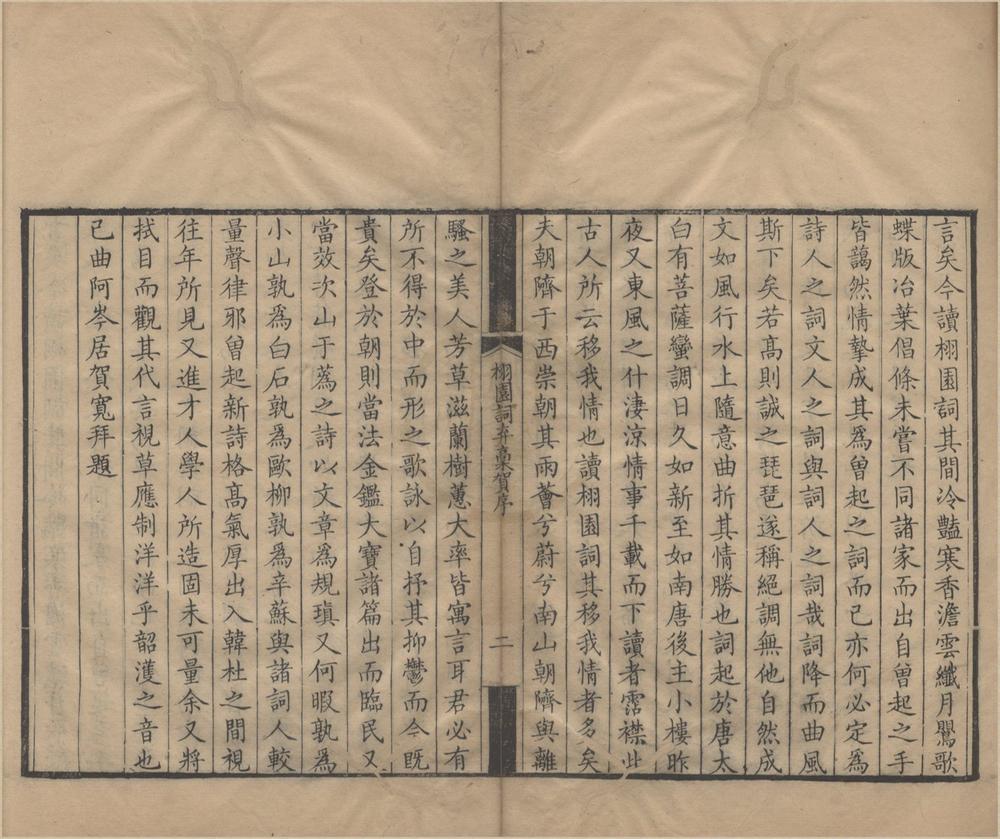 言矣今讀栩園詞其間冷豔寒香澹雲纖月鶯歌
蝶版冶葉倡條未嘗不同諸家而出自曾起之手
皆藹然情摯成其爲曾起之詞而已亦何必定爲
詩人之詞文人之詞與詞人之詞哉詞降而曲風
斯下矣若高則誠之琵琶遂稱絕調無他自然成
文如風行水上隨意曲折其情勝也詞起於唐太
白有菩薩蠻調日久如新至如南唐後主小樓昨
夜又東風之什淒涼情事千載而下讀者霑襟此
古人所云移我情也讀栩園詞其移我情者多矣
夫朝隮于西崇朝其雨薈兮蔚兮南山朝隮與離
栩園詞弃稾賀序
二
騷之美人芳草滋蘭樹蕙大率皆寓言耳君必有
所不得於中而形之歌詠以自抒其抑鬱而今既
貴矣登於朝則當法金鑑大寶諸篇出而臨民又
當效次山于蔿之詩以文章爲規瑱又何暇孰爲
小山孰爲白石孰爲歐柳孰爲辛蘇與諸詞人較
量聲律邪曾起新詩格高氣厚出入韓杜之間視
往年所見又進才人學人所造固未可量余又將
拭目而觀其代言視草應制洋洋乎韶濩之音也
己曲阿岑居賀寬拜題